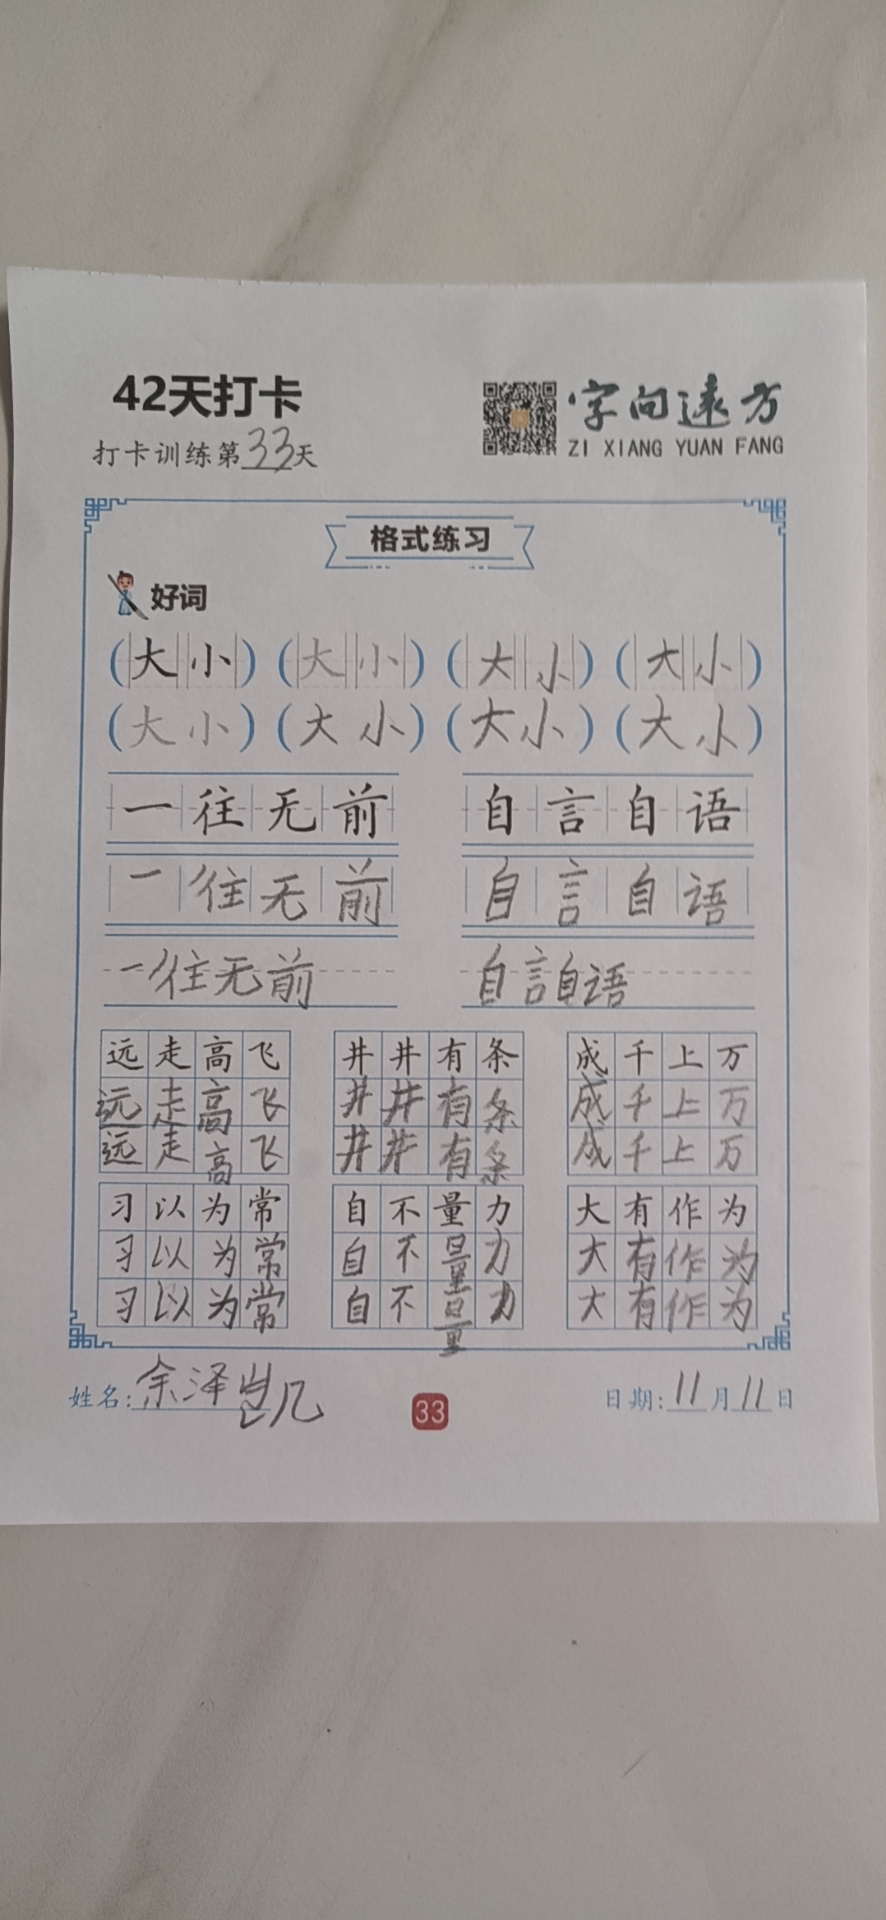 42天打卡
字向远方
打卡训练第33天
ZI XIANG YUAN FANG
格式练习
好词
(大小) (大小) (大小) (大小)
(大小) (大小) (大小) (大小)
一往无前 自言自语
一往无前 自言自语
一往无前 自言自语
远走高飞 井井有条 成千上万
远走高飞 井井有条 成千上万
远走高飞 井井有条 成千上万
习以为常 自不量力 大有作为
习以为常 自不量力 大有作为
习以为常 自不量力 大有作为
姓名:余泽 33 日期:11月11日